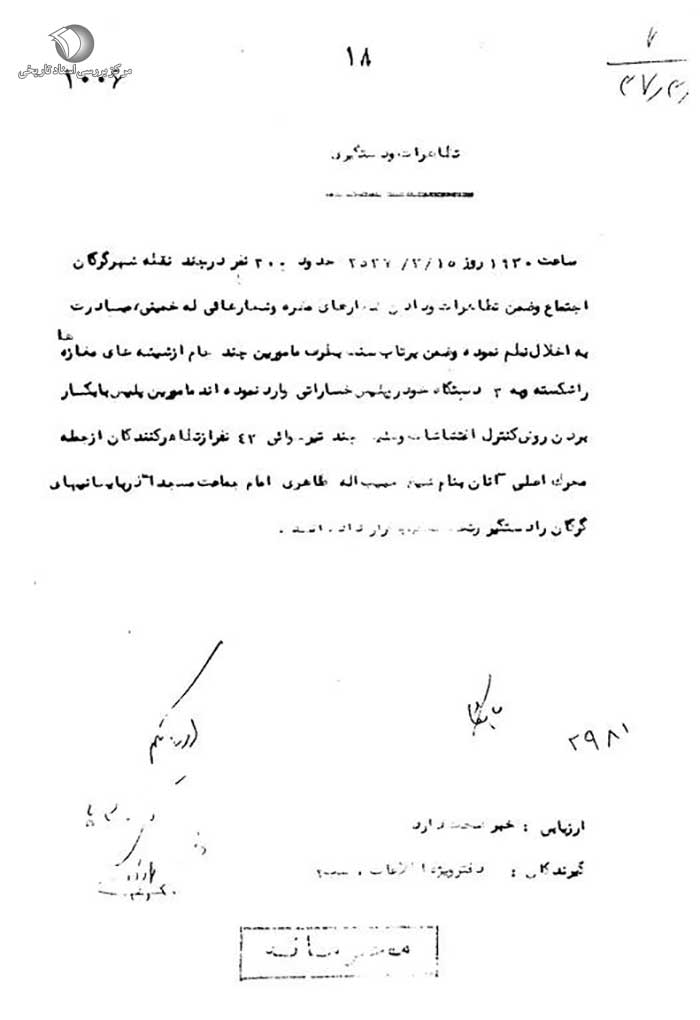 مرکز بررسی اسناد تاریخی
۱۰۰۶
۱۸
۷
تظاهرات و دستگیری
ساعت ۱۹۳۰ روز ۲۵۳۷/۳/۱۵ حدود ۲۰۰ نفر در چند نقطه شهر گرگان
اجتماع و ضمن تظاهرات و دادن شعارهای مضره و شعارهائی له خمینی، مبادرت
به اخلال نظم نموده و ضمن پرتاب سنگ بطرف مامورین چند جام از شیشه های مغازه ها
را شکسته و به ۲ دستگاه خودرو پلیس خساراتی وارد نموده اند مامورین پلیس با بکار
بردن روش کنترل اغتشاشات و چند تیر هوائی ۴۲ نفر از تظاهرکنندگان از جمله
محرک اصلی آنان بنام شیخ حبیب اله طاهری امام جماعت مسجد آذربایجانیهای
گرگان را دستگیر و تحت قرار داده اند .
بایگانی
۲۹۸۱
ارزیابی : خبر صحت دارد
گیرندگان : دفتر ویژه اطلاعات ،